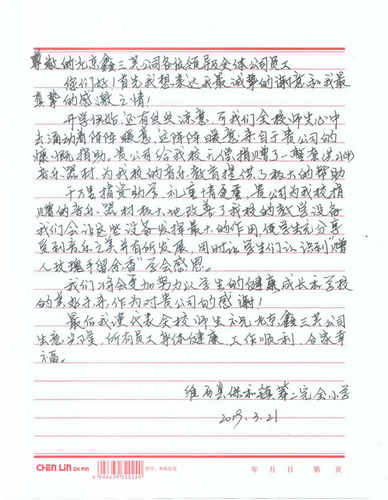 尊敬的北京鑫三其公司各位领导及全体公司员工
您们好！首先我想表达我最诚挚的谢意和我最
真挚的感激之情！
开学伊始，还有丝丝凉意，可我们全校师生心中
去涌动着阵阵暖意，这阵阵暖意来自于贵公司的
慷慨捐助。贵公司给我校无偿捐赠了一整套
音乐器材，为我校的音乐教育提供了极大的帮助
千万里捐资助学，礼重情更重，贵公司为我校捐
赠的音乐器材极大地改善了我校的教学设备
我们会让这些设备发挥最大的作用，使学生充分享
受到音乐之美并有所发展，同时让学生们认识到“赠
人玫瑰手留余香”学会感恩。
我们将会更加努力以学生的健康成长和学校
的美好未来作为对贵公司的感谢！
最后我谨代表全校师生祝北京鑫三其公司
生意兴隆，所有员工身体健康，工作顺利，合家幸
福。
维西县保和镇第二完全小学
2019.3.21
CHEN LIN
年 月 日 第 页